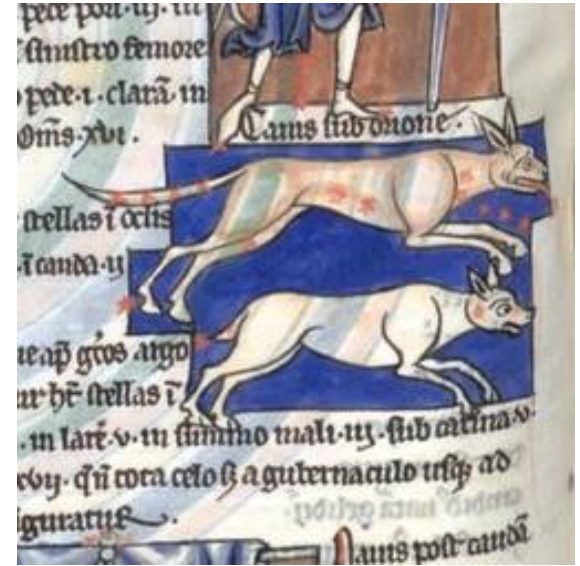 pede pon. iij. in
sinistro femore
pede .i. clarā in
Om̄s .xvi.
Canis sub orione.
stellas ī oclis
ī cauda .ij
ue ap̄ gr̄os argo
ur hr̄ stellas ī
.in lar̄e .v. in summo mali .iij. sub carina .v.
xvij. qn̄ tota celo ẞ a gubernaculo usq; ad
iguratur.
nauis post caudā